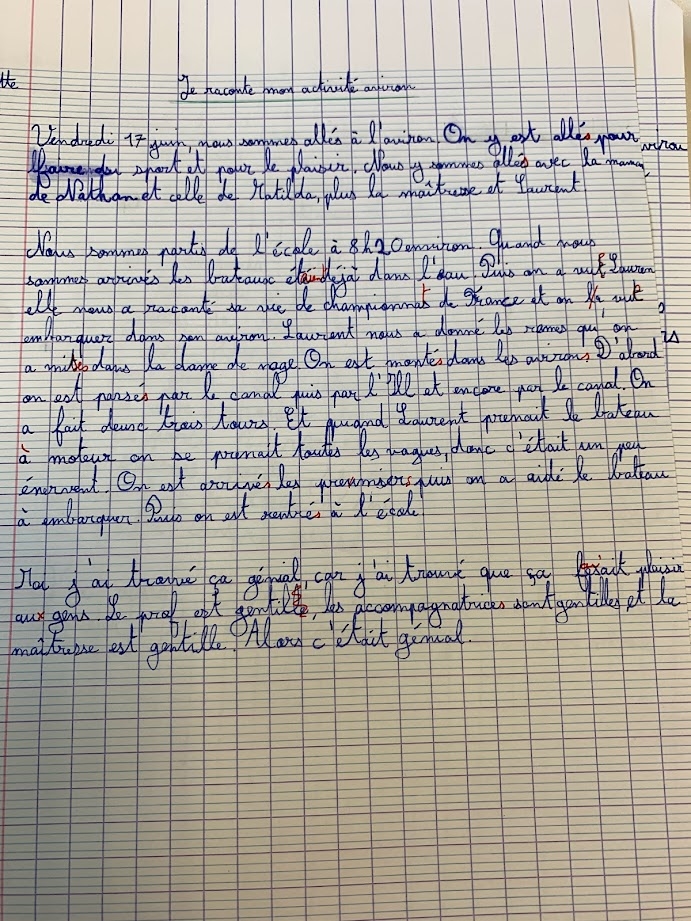 tte
Je raconte mon activité aviron
Vendredi 17 juin, nous sommes allés à l'aviron. On y est allés pour
faire du sport et pour le plaisir. Nous y sommes allés avec la maman
de Nathan et celle de Matilda, plus la maîtresse et Laurent
Nous sommes partis de l'école à 8h20 environ. Quand nous
sommes arrivés les bateaux déjà dans l'eau. Puis on a vu Lauren
elle nous a raconté sa vie de championnat de France et on
embarquer dans son aviron. Laurent nous a donné les rames qu'on
a dans la dame de nage. On est montés dans les avirons. D'abord
on est passés par le canal puis par l'Ill et encore par le canal. On
a fait deux trois tours. Et quand Laurent prenait le bateau
à moteur on se prenait toutes les vagues, donc c'était un peu
énervent. On est arrivés les premiers puis on a aidé le bateau
à embarquer. Puis on est rentrés à l'école.
Moi j'ai trouvé ça génial, car j'ai trouvé que ça plaisir
aux gens. Le prof est gentil, les accompagnatrices sont gentilles et la
maîtresse est gentille. Alors c'était génial.